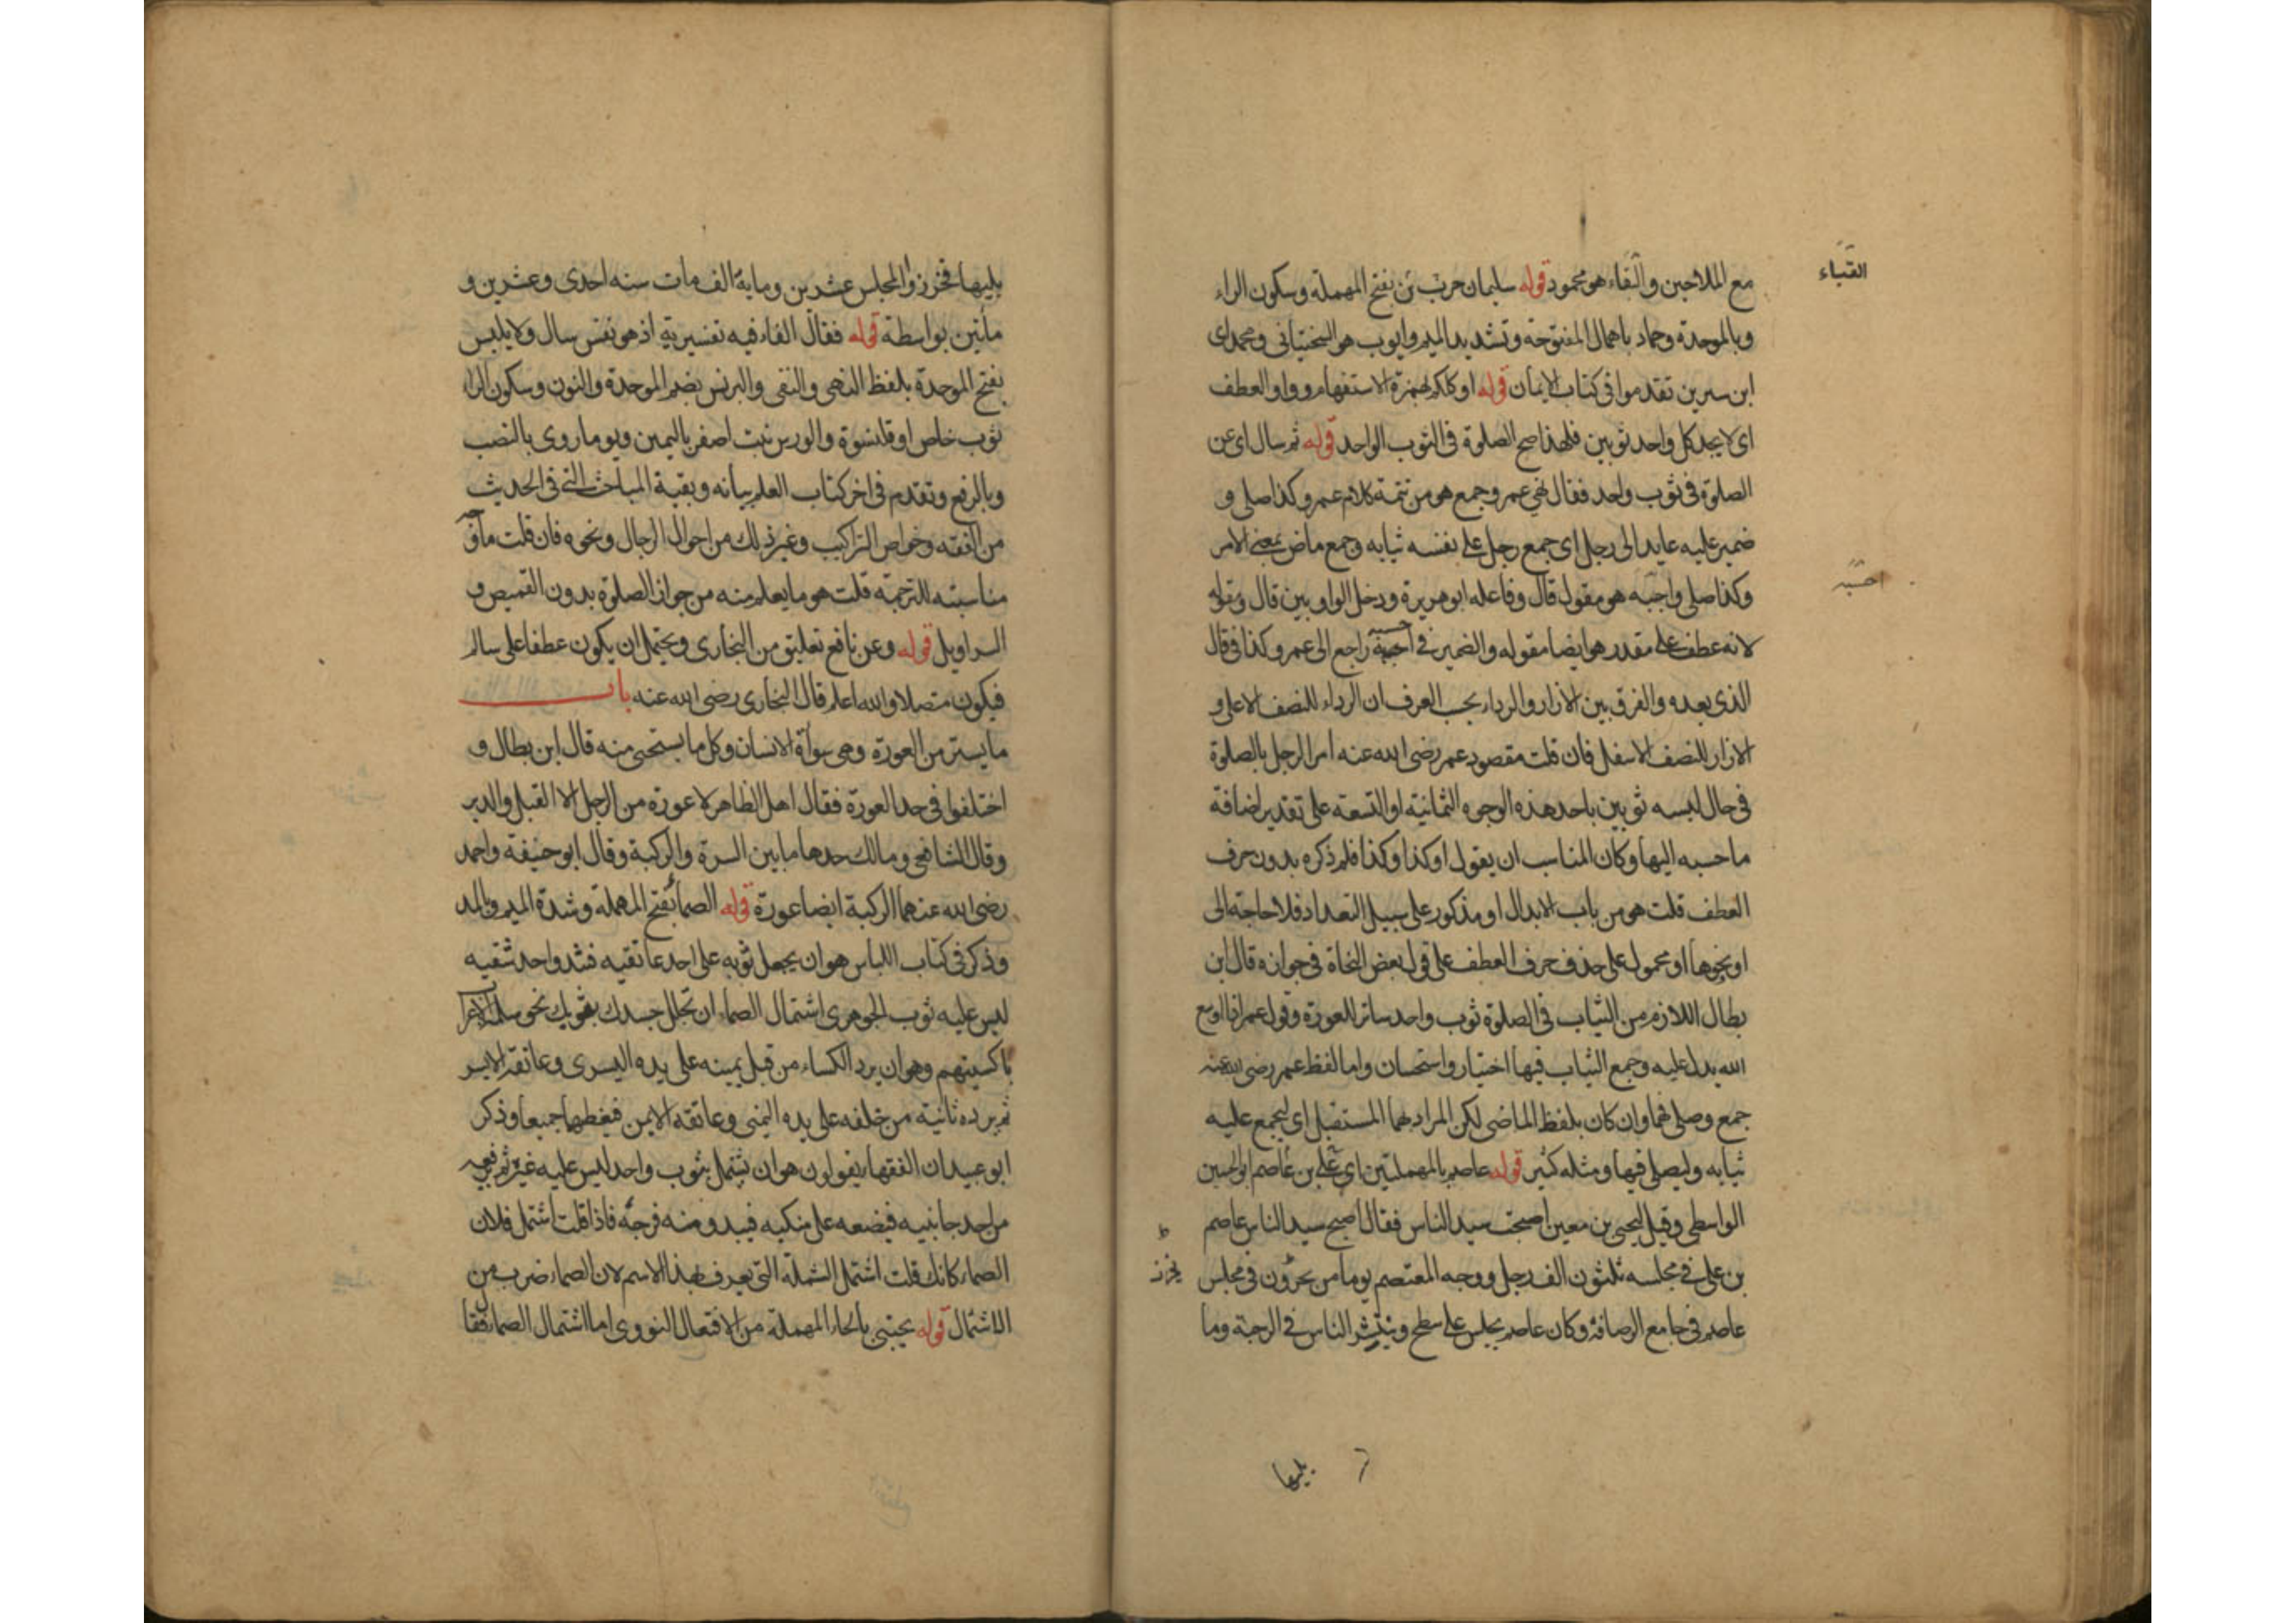 القباء
مع الملاحين والقباء هو محمود قوله سليمان حرب بن بفتح المهملة وسكون الراء
وبالموحدة وحماد باهمال المفتوحة وتشديد الميم وايوب هو السختياني ومحمد اى
ابن سيرين تقدموا في كتاب الايمان قوله اوكلكم بهمزة الاستفهام وواو العطف
اى لا يجد كل واحد ثوبين فلهذا صح الصلوة في الثوب الواحد قوله ثم سال اى عن
الصلوة في ثوب واحد فقال عمر وجمع هو من تتمة كلام عمر وكذا صلى و
ضمير عليه عايد الى رجل اى جمع رجل على نفسه ثيابه وجمع ماض بمعنى الامر
احسبه
وكذا صلى واحبه هو مقول قال وفاعله ابو هريرة ودخل الواو بين قال ومقوله
لانه عطف على مقدر هو ايضا مقوله والضمير في احسبه راجع الى عمر وكذا في قال
الذى بعده والفرق بين الازار والرداء بحسب العرف ان الرداء للنصف الاعلى و
الازار للنصف الاسفل فان قلت مقصود عمر رضى الله عنه امر الرجل بالصلوة
في حال لبسه ثوبين باحد هذه الوجوه الثمانية او التسعة على تقدير اضافة
ما حسبه اليها وكان المناسب ان يقول او كذا او كذا فلم ذكره بدون حرف
العطف قلت هو من باب الابدال او مذكور على سبيل التعداد فلا حاجة الى
او نحوها او محمول على حذف حرف العطف على قول بعض النحاة في جوازه قال ابن
بطال اللازم من الثياب في الصلوة ثوب واحد ساتر للعورة وقول عمر اذا اوسع
الله يدل عليه وجمع الثياب فيها اختيار واستحسان واما لفظ عمر رضى الله عنه
جمع وصلى فهما وان كان بلفظ الماضى لكن المراد بهما المستقبل اى ليجمع عليه
ثيابه وليصلى فيها ومثله كثير قوله عاصم بالمهملتين اى على بن عاصم ابو الحسين
الواسطى وقيل ليحيى بن معين اصبحت سيد الناس فقال اصبح سيد الناس عاصم
بن على في مجلسه ثلثون الف رجل ووجه المعتصم يوما من يحزرون في مجلس
يحزر
عاصم في جامع الرصافة وكان عاصم يجلس على سطح وينتشر الناس في الرحبة وما
يليها
يليها فحزروا المجلس عشرين ومايه الف مات سنه احدى وعشرين و
مأتين بواسطة قوله فقال الفاء فيه تفسيرية اذ هو نفس سال ولا يلبس
بفتح الموحدة بلفظ النهى والنفى والبرنس بضم الموحدة والنون وسكون الراء
ثوب خاص او قلنسوة والورس نبت اصفر باليمن ويوما روى بالنصب
وبالرفع وتقدم في اخر كتاب العلم بيانه وبقية المباحث التى في الحديث
من الفقه وخواص التراكيب وغير ذلك من احوال الرجال ونحوه فان قلت ما وجه
مناسبته للترجمة قلت هو ما يعلم منه من جواز الصلوة بدون القميص و
السراويل قوله وعن نافع تعليق من البخارى ويحتمل ان يكون عطفا على سالم
فيكون متصلا والله اعلم قال البخارى رضى الله عنه باب
ما يستر من العورة وهى سوأة الانسان وكل ما يستحى منه قال ابن بطال و
اختلفوا في حد العورة فقال اهل الظاهر لا عورة من الرجل الا القبل والدبر
وقال الشافعى ومالك حدها ما بين السرة والركبة وقال ابو حنيفة واحمد
رضى الله عنهما الركبة ايضا عورة قوله الصماء بفتح المهملة وشدة الميم وبالمد
وذكر في كتاب اللباس هو ان يجعل ثوبه على احد عاتقيه فيبدو احد شقيه
ليس عليه ثوب الجوهرى اشتمال الصماء ان تجلل جسدك بثوبك نحو شملة الاعراب
باكسيتهم وهو ان يرد الكساء من قبل يمينه على يده اليسرى وعاتقه الايسر
ثم يرده ثانية من خلفه على يده اليمنى وعاتقه الايمن فيغطيهما جميعا وذكر
ابو عبيد ان الفقهاء يقولون هو ان يشتمل بثوب واحد ليس عليه غيره ثم يرفعه
من احد جانبيه فيضعه على منكبيه فيبدو منه فرجه فاذا قلت اشتمل فلان
الصماء كانك قلت اشتمل الشملة التى يعرف بهذا الاسم لان الصماء ضرب من
الاشتمال قوله يحتبى بالحاء المهملة من الافتعال النووى اما اشتمال الصماء فقا